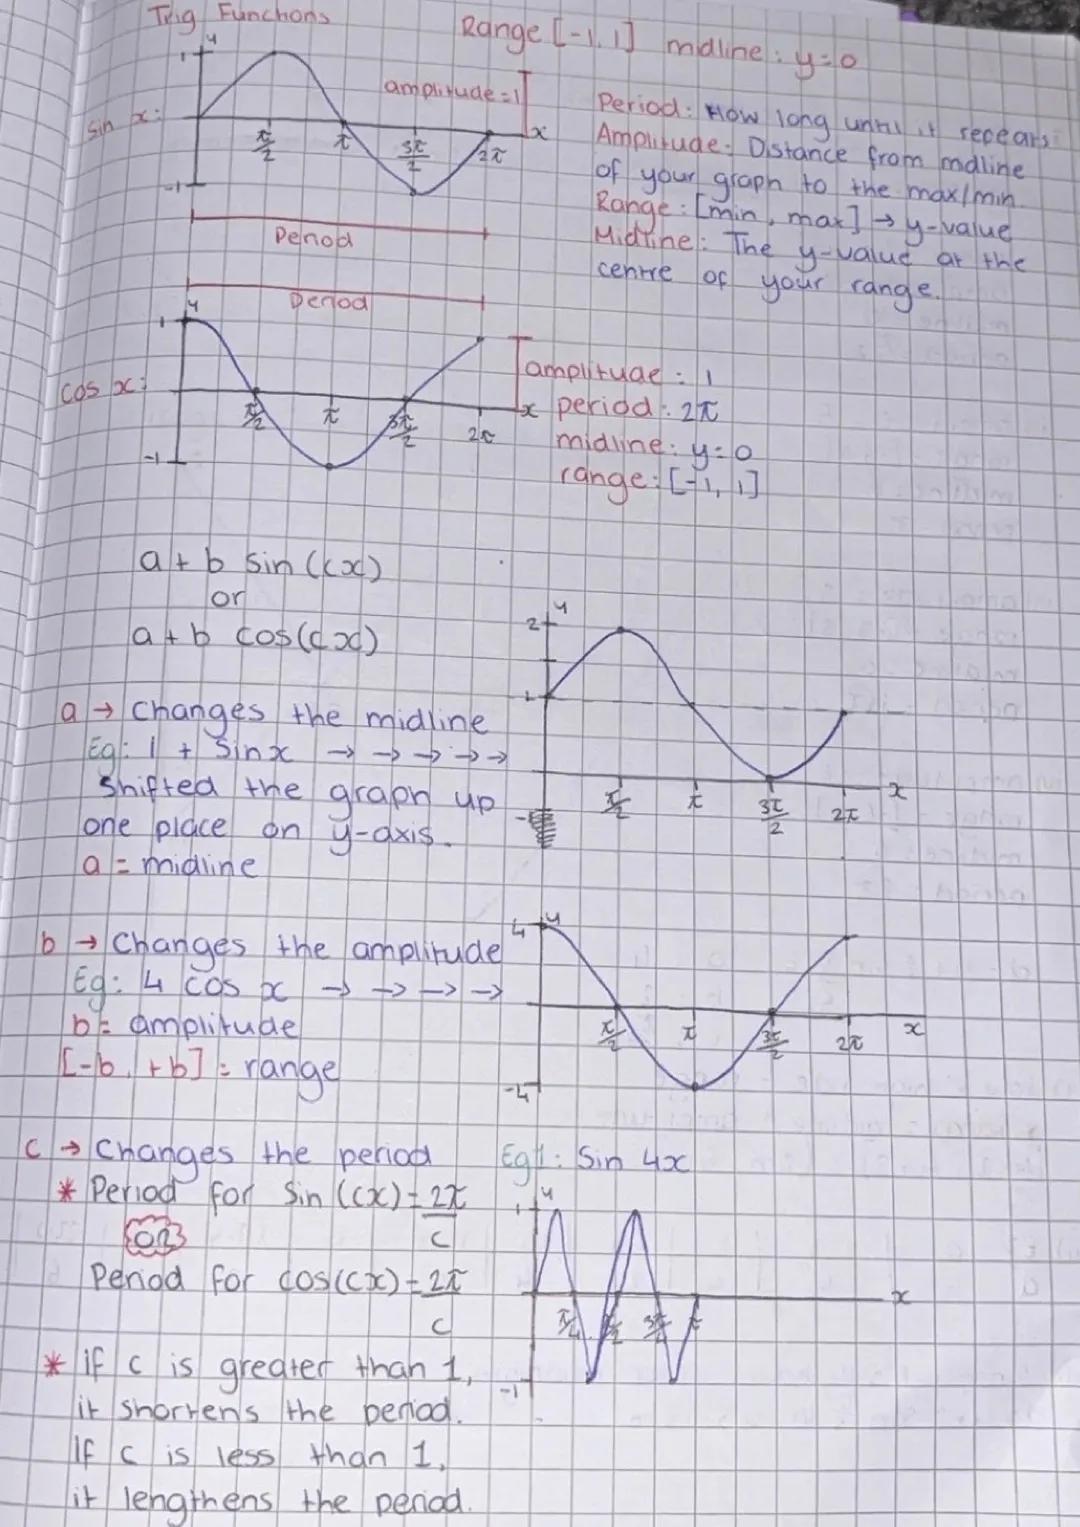 Trig Functions
Range [-1, 1] midline: y=0
y
1
amplitude=1
sin x:
π/2
π
3π/2
2π
x
-1
Period
Period: How long until it repeats
Amplitude: Distance from midline
of your graph to the max/min.
Range: [min, max] → y-value
Midline: The y-value at the
centre of your range.
Period
y
1
cos x:
π/2
π
3π/2
2π
x
-1
amplitude: 1
period: 2π
midline: y=0
range: [-1, 1]
a + b sin (cx)
or
a + b cos(cx)
a → changes the midline
Eg: 1 + sinx → → → → →
shifted the graph up
one place on y-axis.
a = midline
y
2
1
π/2
π
3π/2
2π
x
b → Changes the amplitude
Eg: 4 cos x → → → →
b = amplitude
[-b, +b] = range
4
y
π/2
π
3π/2
2π
x
-4
c → Changes the period
* Period for sin (cx) = 2π/c
OR
Period for cos(cx) = 2π/c
* if c is greater than 1,
it shortens the period.
If c is less than 1,
it lengthens the period.
Eg1: Sin 4x
y
1
π/4
π/2
3π/4
π
x
-1